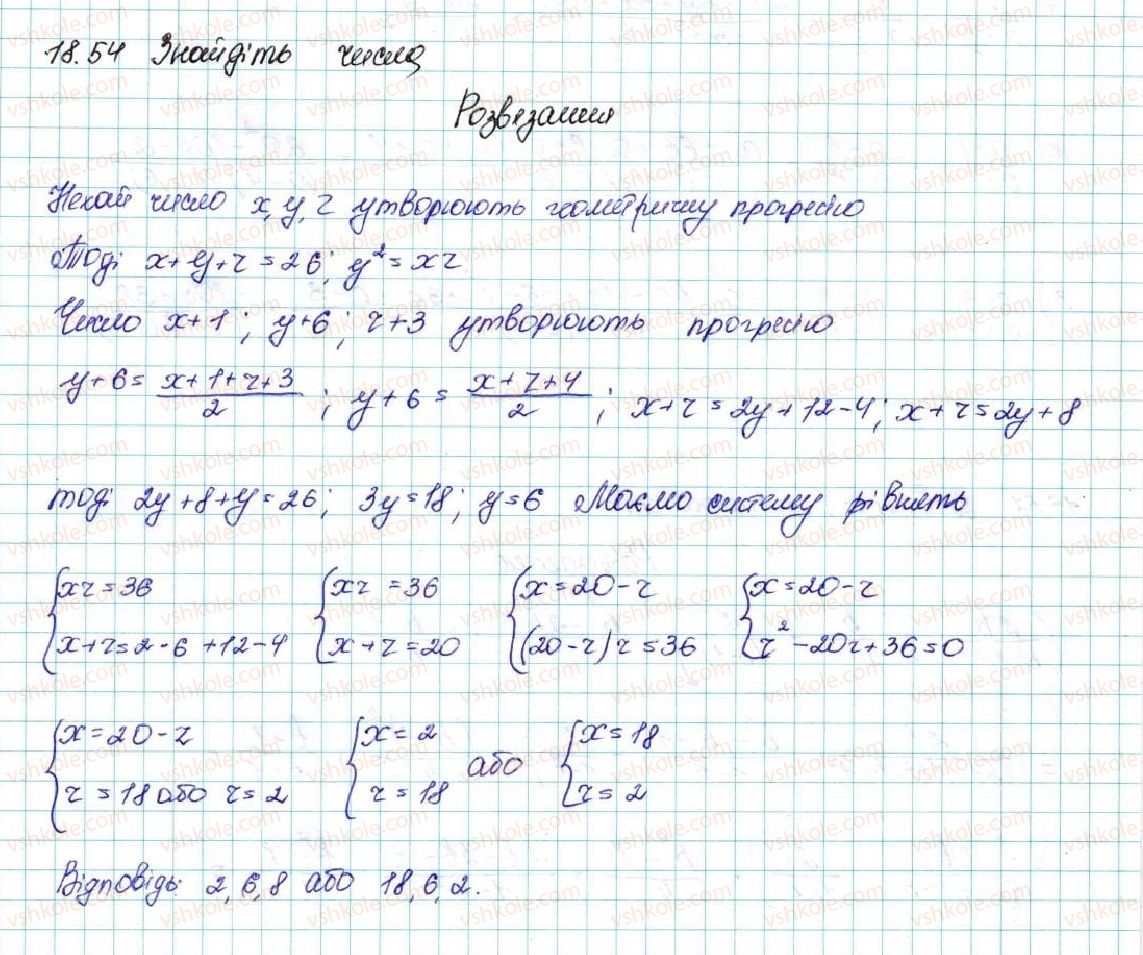 18.54 Знайдіть числа
Розвязання
Нехай число x, y, z утворюють геометричну прогресію
Тоді x+y+z=26; y²=xz
Число x+1; y+6; z+3 утворюють прогресію
y+6=(x+1+z+3)/2; y+6=(x+z+4)/2; x+z=2y+12-4; x+z=2y+8
тоді 2y+8+y=26; 3y=18; y=6 Маємо систему рівнять
{xz=36 {xz=36 {x=20-z {x=20-z
{x+z=2·6+12-4 {x+z=20 {(20-z)z=36 {z²-20z+36=0
{x=20-z {x=2 або {x=18
{z=18 або z=2 {z=18 {z=2
Відповідь: 2, 6, 8 або 18, 6, 2.